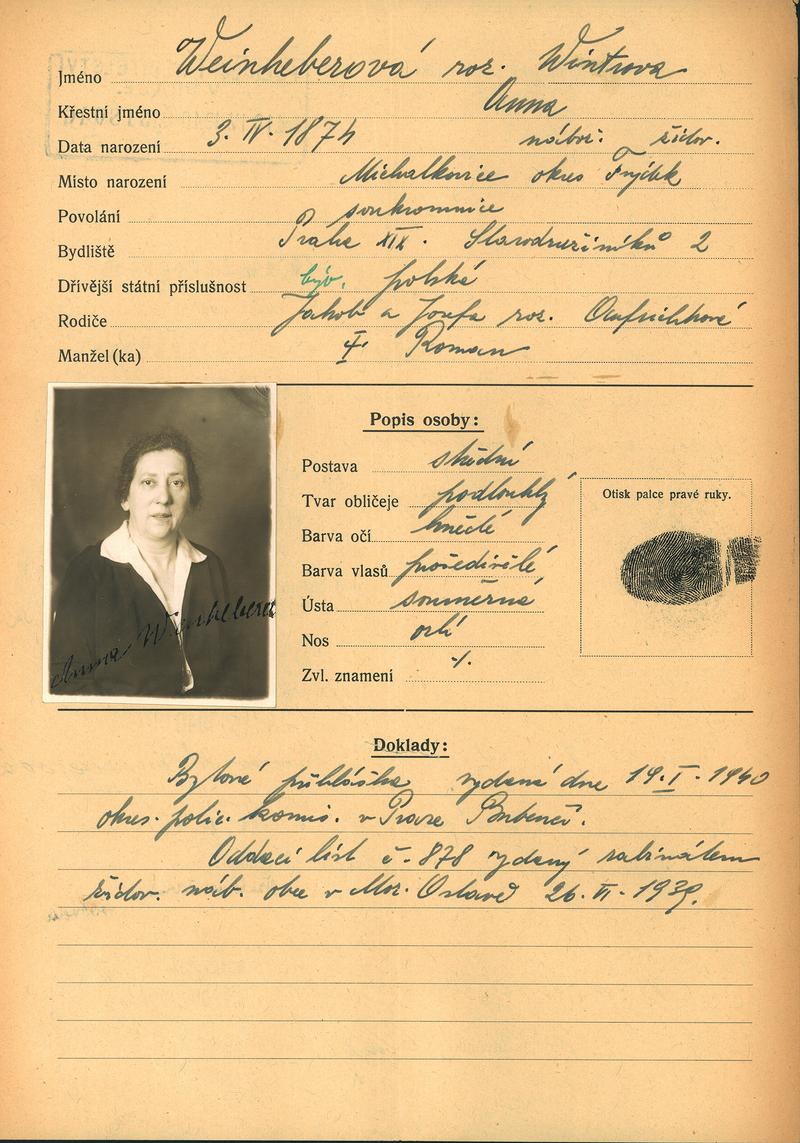 Jméno Weinheberová roz. Wintrova
Křestní jméno Anna
Data narození 3. IV. 1874 nábož. židov.
Místo narození Michalkovice okres Frýdek
Povolání soukromnice
Bydliště Praha XIX. Starodružiníků 2
Dřívější státní příslušnost býv. polská
Rodiče Jakob a Josefa roz.
Manžel (ka) Roman
Popis osoby:
Postava střední
Tvar obličeje podlouhlý
Barva očí hnědé
Barva vlasů prošedivělé
Ústa souměrná
Nos orlí
Zvl. znamení ./.
Otisk palce pravé ruky.
Anna Weinheberová
Doklady:
Bytová přihláška vydaná dne 19. I. 1940
okres. polic. komis. v Praze Bubenči.
Oddací list č. 878 vydaný rabinátem
židov. náb. obce v Mor. Ostravě 26. VI. 1939.